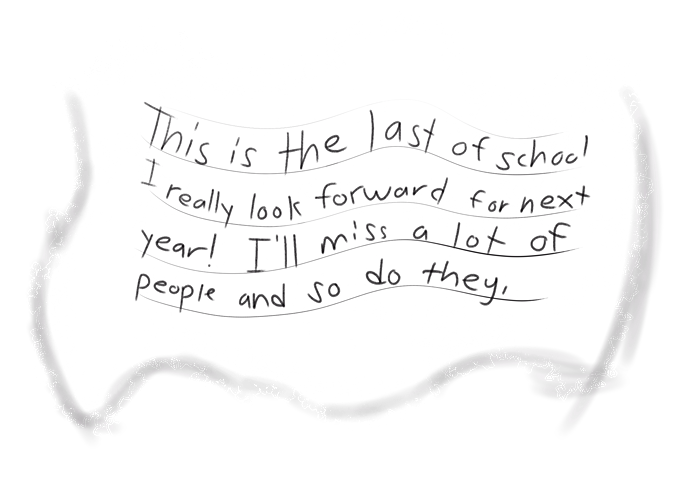 This is the last of school
I really look forward for next
year! I'll miss a lot of
people and so do they.